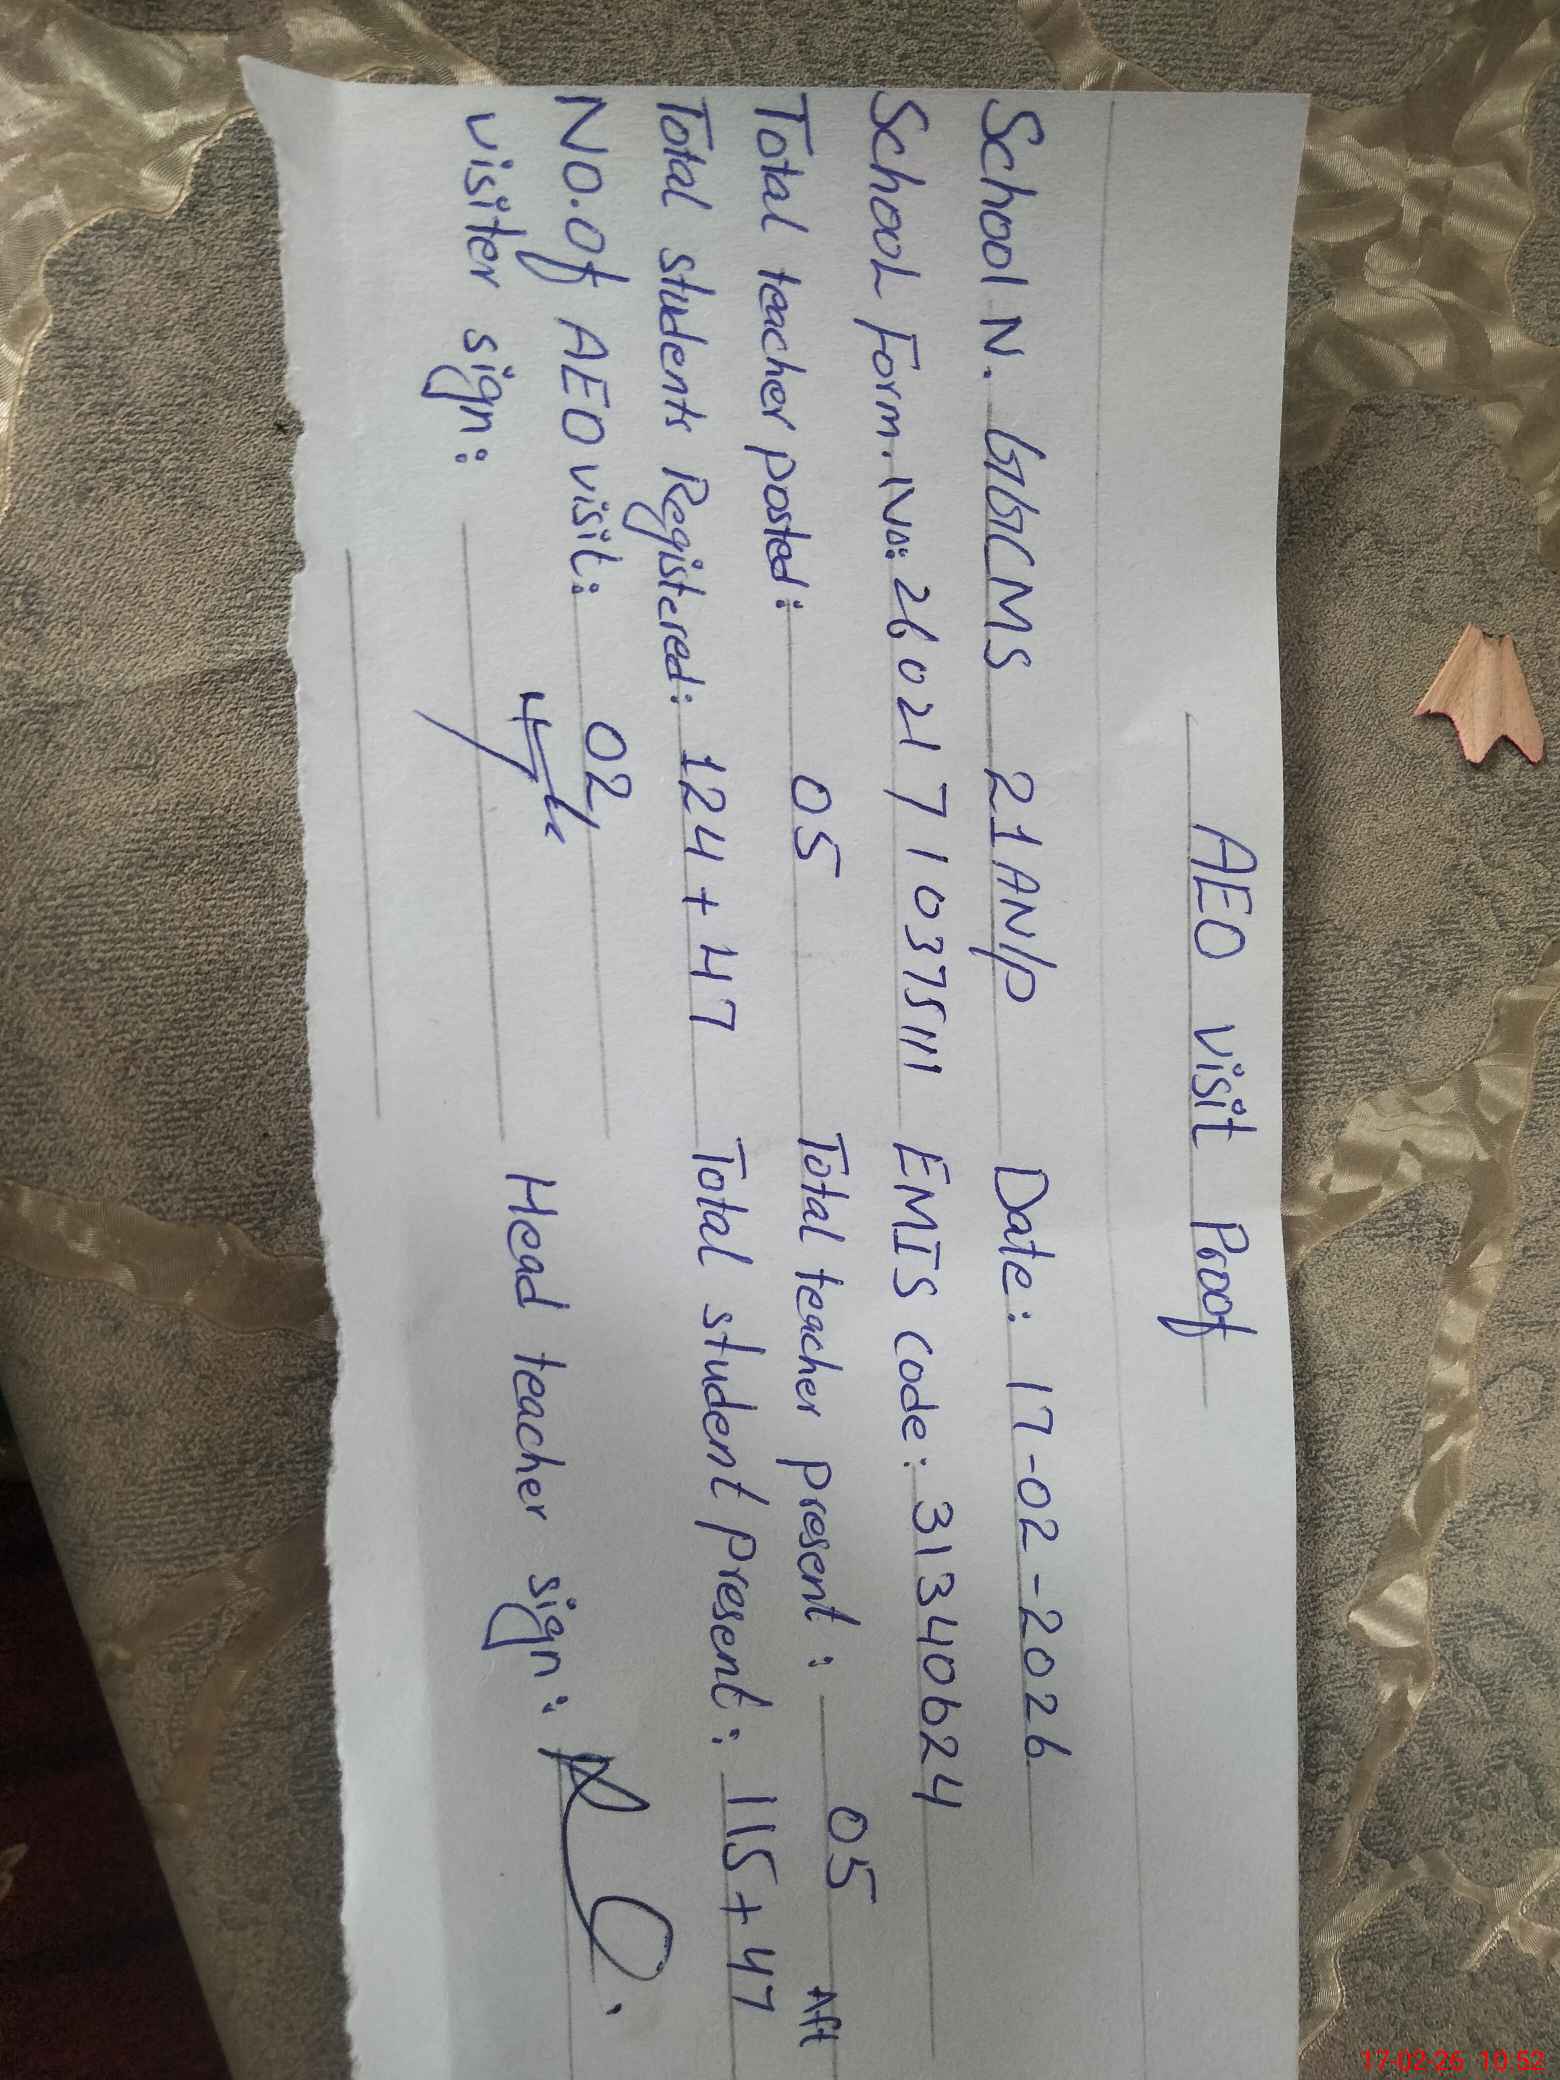 AEO visit Proof
School N. GGCMS 21AN/P Date: 17-02-2026
School Form. No: 26021 7 1 0375111 EMIS code: 31340624
Total teacher posted: 05 Total teacher present: 05 Aft
Total students Registered: 124 + 47 Total student present: 115 + 47
No. of AEO visit: 02
visiter sign: Head teacher sign:
17-02-26 10:52